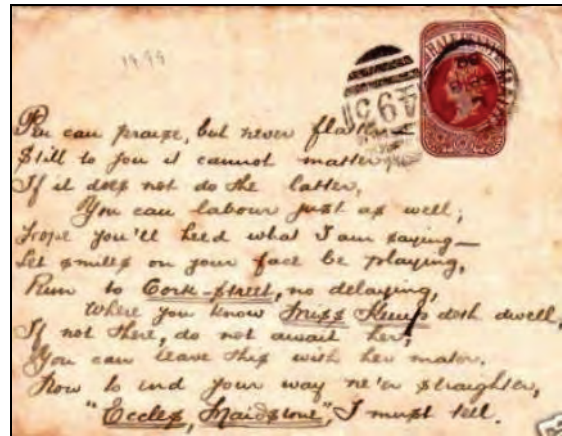 HALFPENNY
1999
493
Pen can praize, but never flatter
Still to you it cannot matter
If it does not do the latter,
You can labour just as well;
Hope you'll heed what I am saying—
Let smiles on your face be playing,
Run to Cork-street, no delaying,
Where you know Miss Kemp doth dwell,
If not there, do not await her,
You can leave this with her mater.
Now to end your way ne'er straighter,
"Eccles, Maidstone", I must tell.